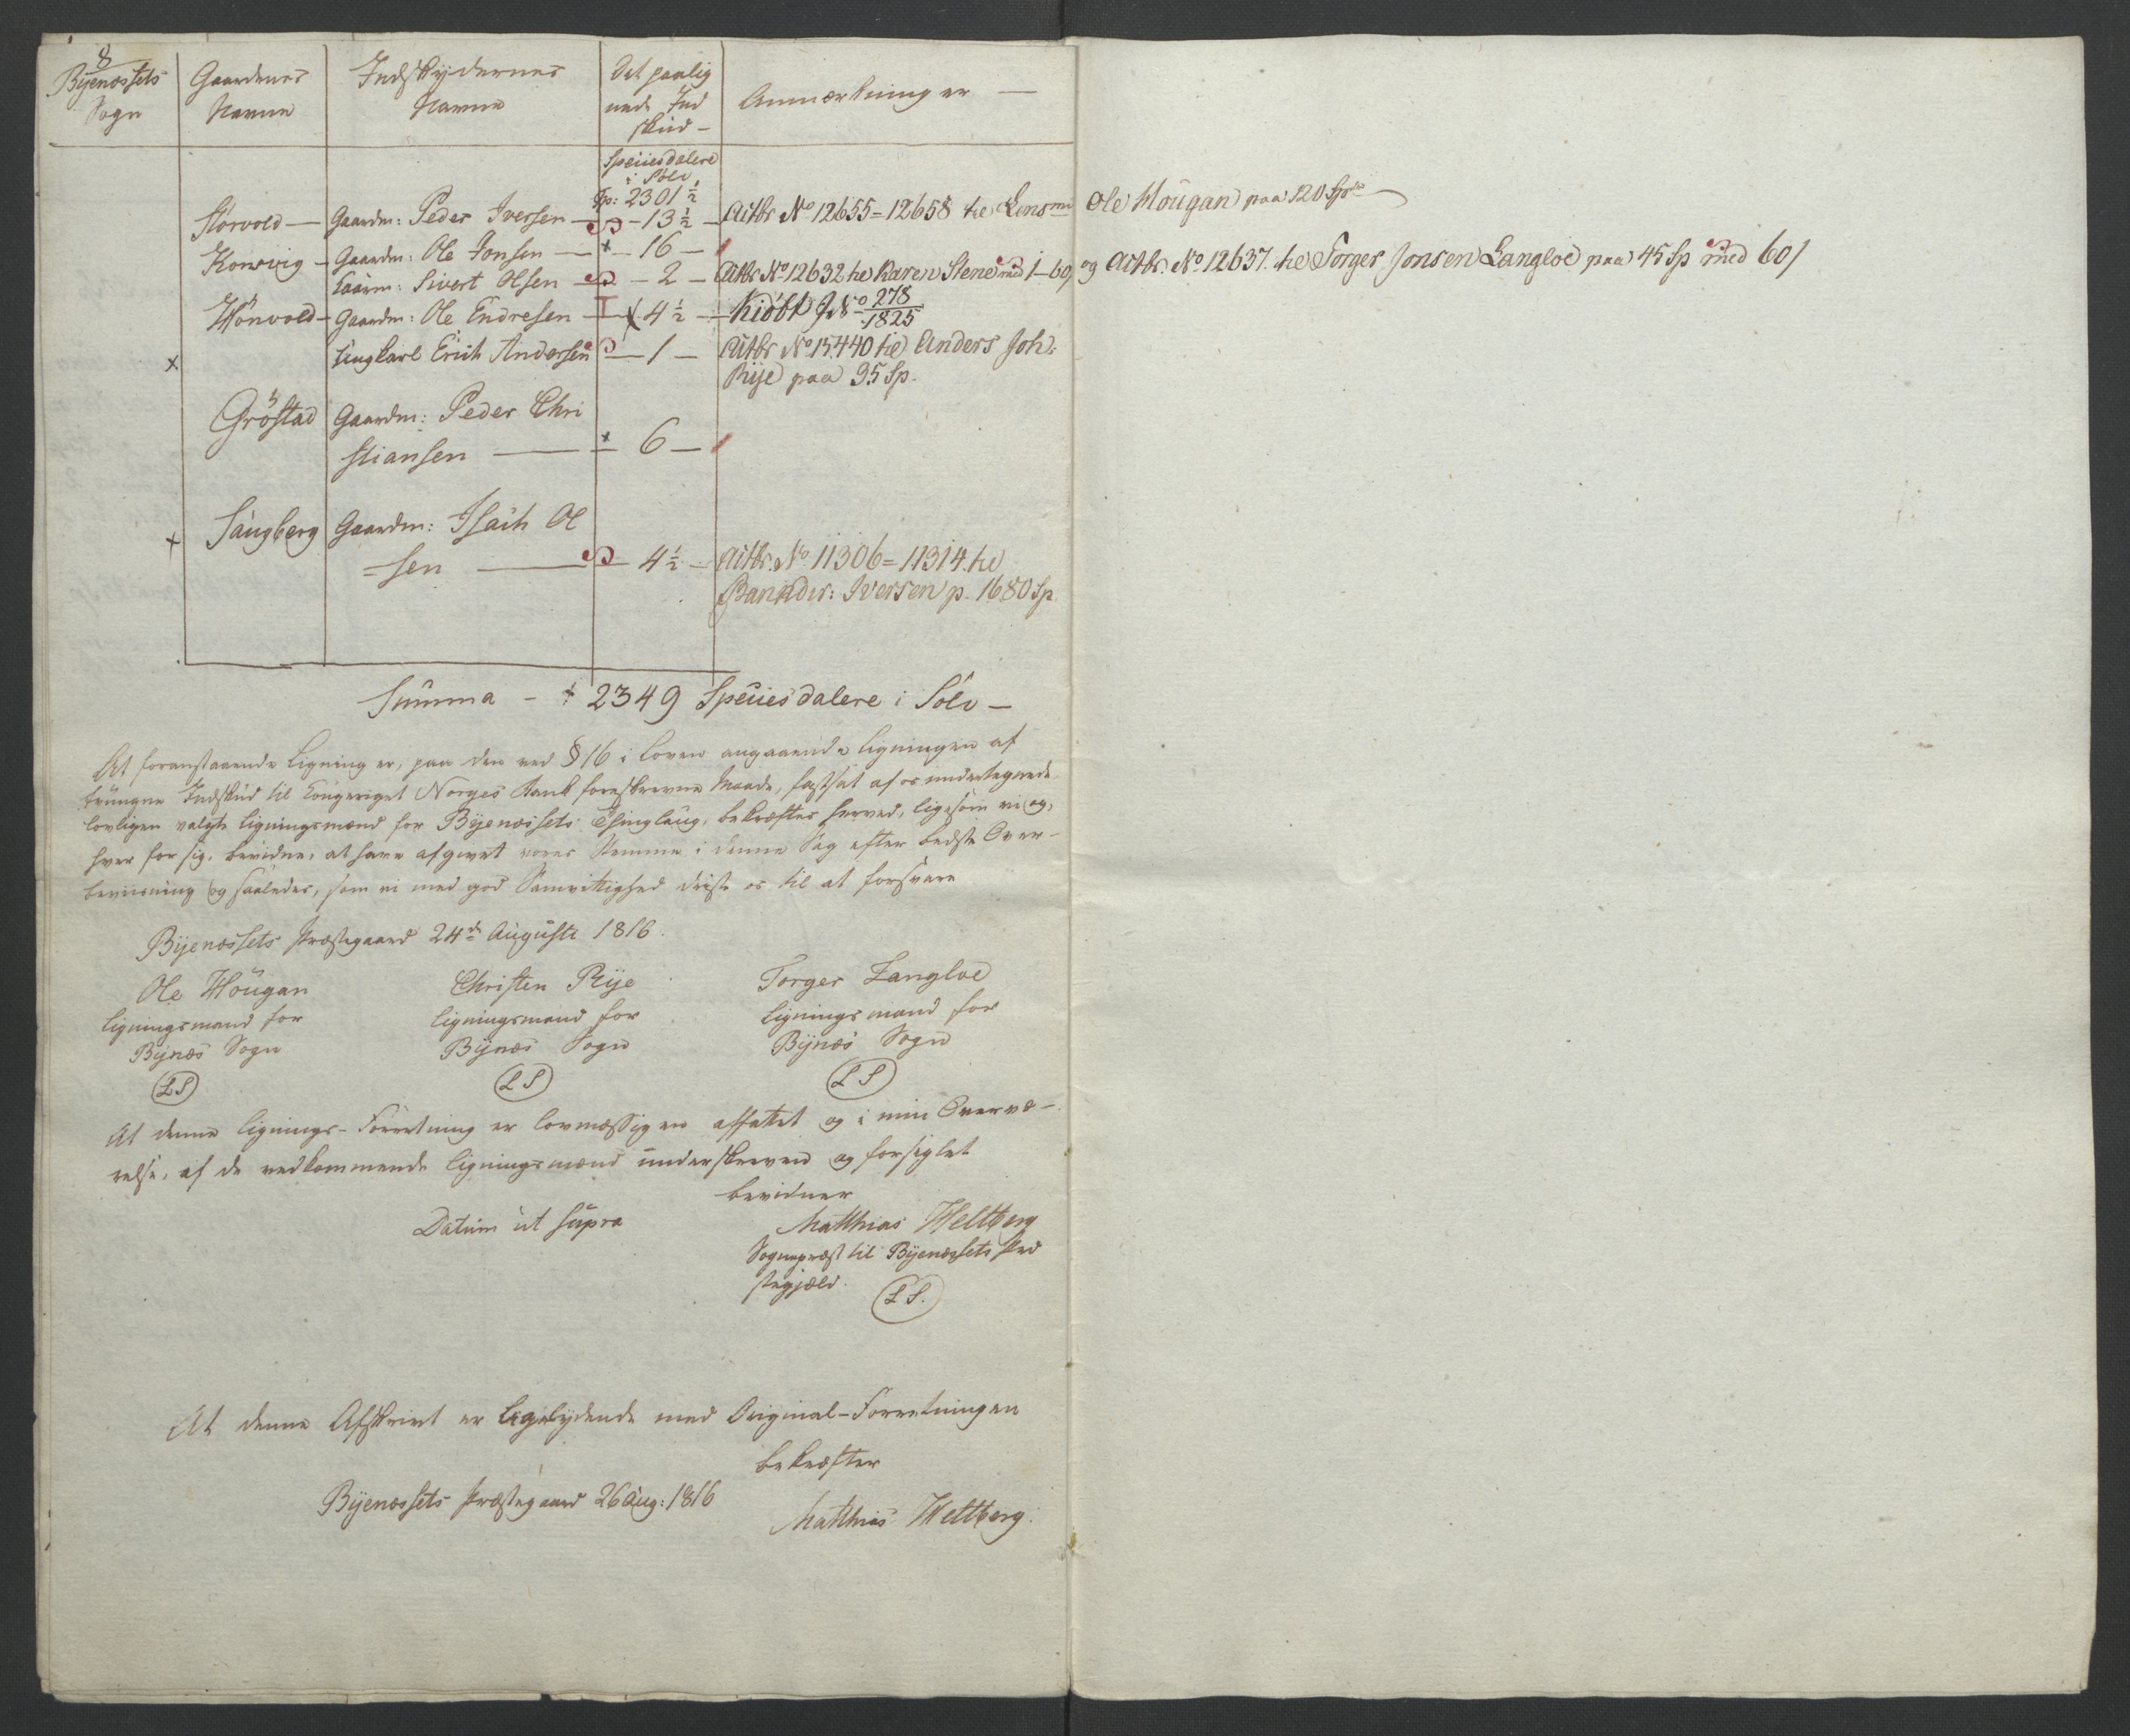 8
Byenæssets Sogn
Gaardenes Navne
Indskydernes Navne
Det paalignede Indskud –
Anmærkninger —
Speciesdalere i Sölv
Sp: 2301 ½
Storvold — Gaardm: Peder Iversen — 13 ½ — Actbr No 12655 = 12658 til Lensm Ole Hougan paa 120 Sp
Konvig – Gaardm: Ole Jonsen — 16 —
Sivert Olsen — 2 — Actbr No 12632 til Karen Stene med 1-60/ og Actbr. No 12637 til Torger Jonsen Langloe paa 45 Sp med 60/
Hönvold – Gaardm: Ole Endresen — 4 ½ — Kiöbt J No 278/1825
x Ungkarl Erich Andersen — 1 — Actbr No 15440 til Anders Joh:
Rye paa 95 Sp.
Gröstad Gaardm: Peder Chri
stiansen — 6 —
x Saugberg Gaardm: Isach Ol
=sen — 4 ½ — Actbr. No 11306 = 11314 til
Bankdir: Iversen p. 1680 Sp
Summa – 2349 Speciesdalere i Sölv —
At foranstaaende Ligning er, paa den ved § 16 i Loven angaaende Ligningen af
tvungne Indskud til Kongeriget Norges Bank foreskrevne Maade, fastsat af os undertegnede
lovligen valgte Ligningsmænd for Byenæssets Thinglaug, bekræftes herved, ligesom vi og,
hver for sig, bevidne, at have afgivet vores Stemme i denne Sag efter bedste Over-
beviisning og saaledes, som vi med god Samvittighed driste os til at forsvare
Byenæssets Præstegaard 24de Augusti 1816.
Ole Hougan
Ligningsmand for
Bynæs Sogn
(LS)
Christen Rye
Ligningsmand for
Bynæs Sogn
(LS)
Torger Langloe
Ligningsmand for
Bynæs Sogn
(LS)
At denne Lignings-Forretning er lovmæssigen affattet og i min Overvæ-
relse, af de vedkommende Ligningsmænd underskreven og forsiglet
bevidner
Datum ut supra
Matthias Weltberg
Sognepræst til Byenæssets Præ
stegjæld.
(LS.)
At denne Afskrivt er ligelydende med Original-Forretningen
bekræfter
Byenæssets Præstegaard 26 Aug: 1816
Matthias Weltberg.